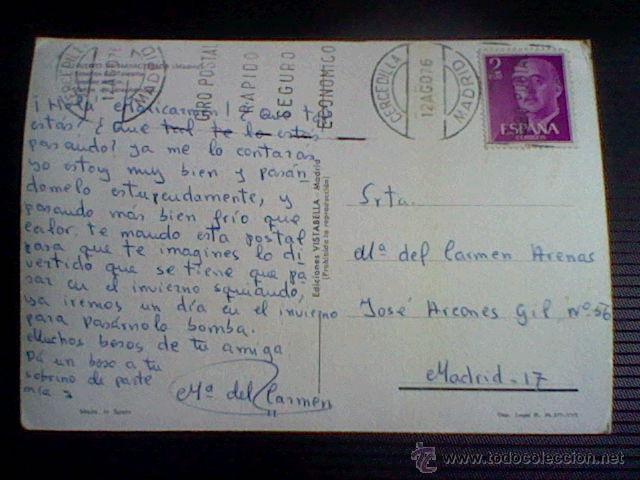 CERCEDILLA
12 AGO 76
MADRID
GIRO POSTAL
RAPIDO
SEGURO
ECONOMICO
CERCEDILLA
12 AGO 76
MADRID
2
ESPAÑA
CORREOS
¡Hola Mª Carmen! ¿Que tal
estás? ¿Que tal te lo estás
pasando? ya me lo contaras
yo estoy muy bien y pasán
domelo estupendamente, y
pasando más bien frío que
calor. te mando esta postal
para que te imagines lo di
vertido que se tiene que pa
sar en el invierno squiando,
ya iremos un día en el invierno
para pasárnolo bomba.
Muchos besos de tu amiga
Mª del Carmen
Dá un beso a tu
sobrino de parte
mía
Ediciones VISTABELLA - Madrid
(Prohibida la reproducción)
Srta.
Mª del Carmen Arenas
José Arcones Gil nº 56
Madrid-17
Made in Spain
www.todocoleccion.net